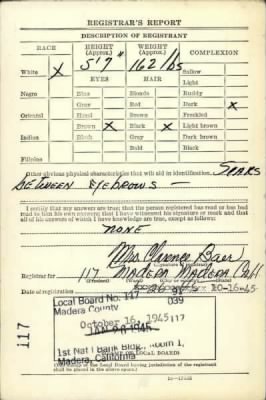 REGISTRAR'S REPORT
DESCRIPTION OF REGISTRANT
RACE HEIGHT (Approx.) WEIGHT (Approx.) COMPLEXION
5'7" 162 lbs
White X Sallow
EYES HAIR Light
Negro Blue Blonde Ruddy
Gray Red Dark X
Oriental Hazel Brown Freckled
Brown X Black X Light brown
Indian Black Gray Dark brown
Bald Black
Filipino
Other obvious physical characteristics that will aid in identification SCARS
BETWEEN EYEBROWS -
I certify that my answers are true; that the person registered has read or has had
read to him his own answers; that I have witnessed his signature or mark and that
all of his answers of which I have knowledge are true, except as follows:
NONE
Mrs. Clarence Baer
Registrar for 117 MADERA MADERA Calif
Date of registration 10-16-45
Local Board No. 117
Madera County 039
October 16, 1945 117
1945
1st Nat'l Bank Bldg., Room 1,
Madera, California
shall be placed in the above space)
117